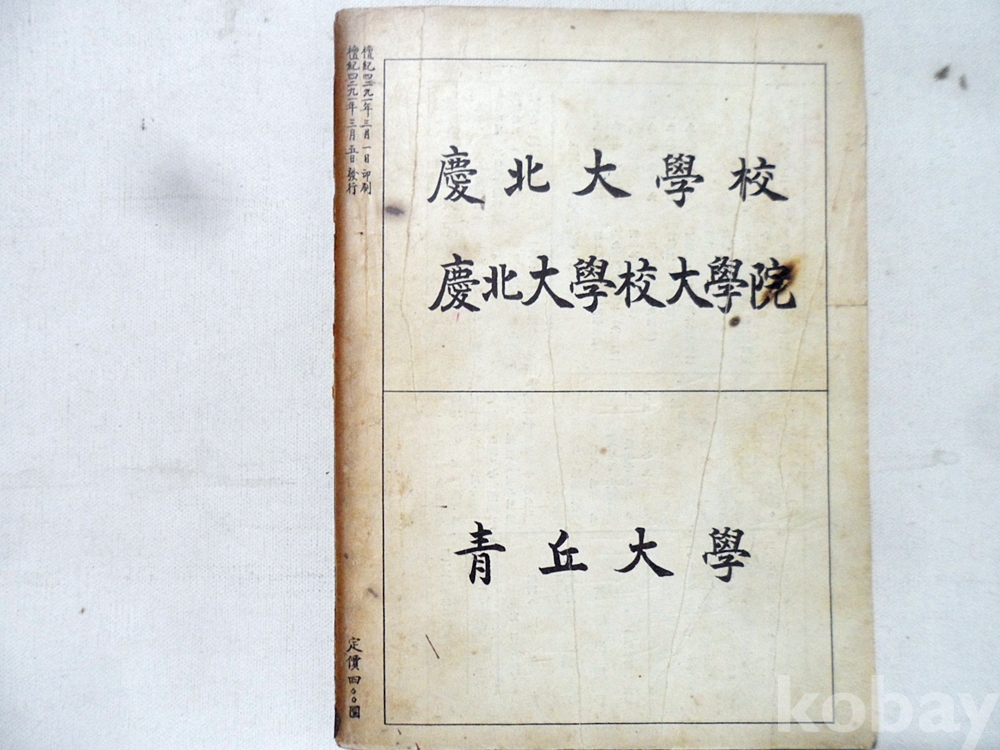 檀紀四二九一年三月一日 印刷
檀紀四二九一年三月五日 發行
慶北大學校
慶北大學校大學院
青丘大學
定價四〇〇圜
kobay